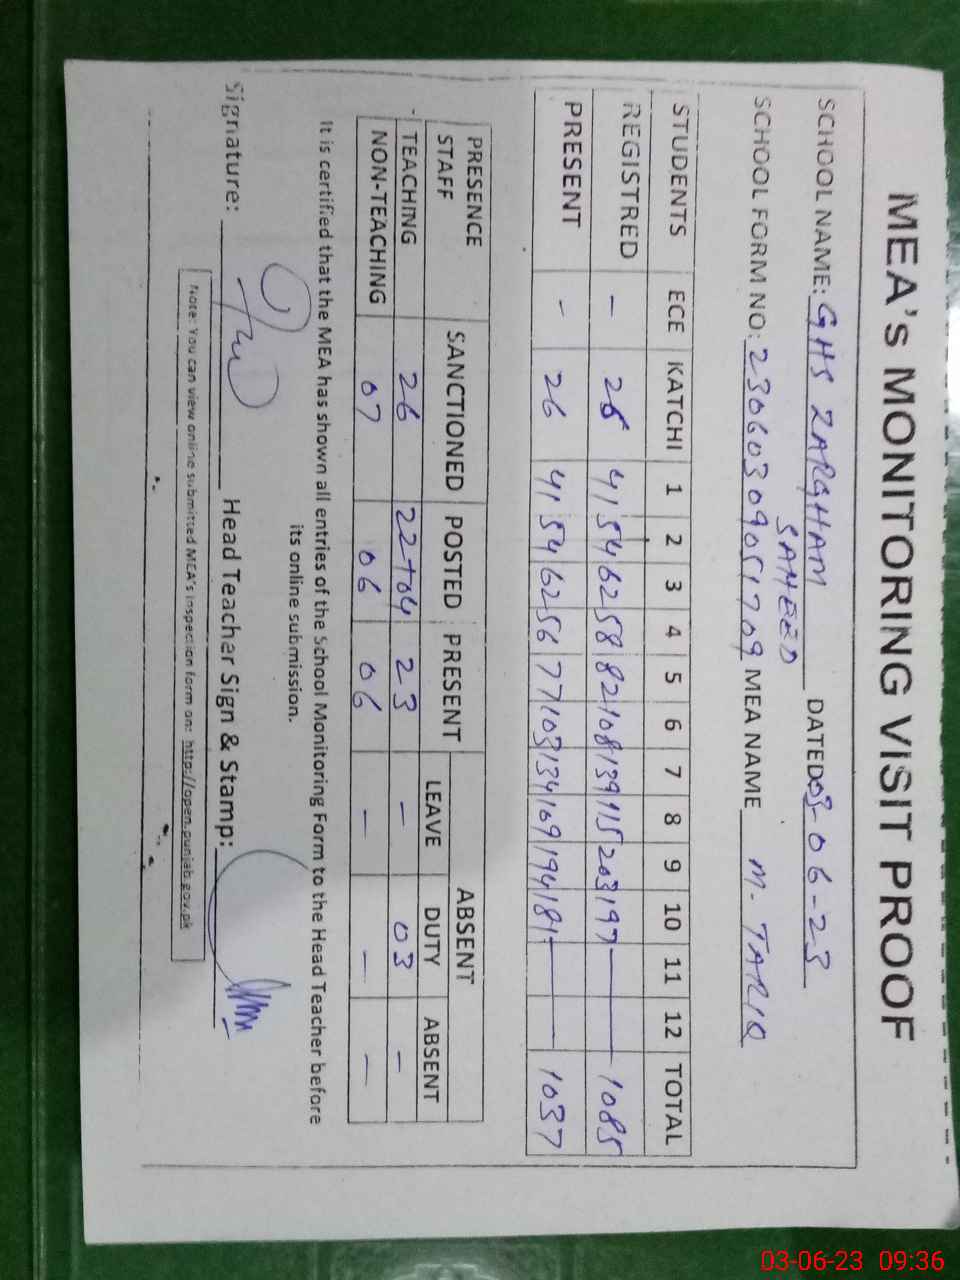 MEA's MONITORING VISIT PROOF
SCHOOL NAME: GHS ZARGHAM DATED 03-06-23
SAHEED
SCHOOL FORM NO: 23060309051709 MEA NAME M. TARIQ
STUDENTS ECE KATCHI 1 2 3 4 5 6 7 8 9 10 11 12 TOTAL
REGISTRED - 26 41 54 62 58 82 108 139 115 203 197 — — 1085
PRESENT - 26 41 54 62 56 77 103 134 109 194 181 — — 1037
PRESENCE SANCTIONED POSTED PRESENT ABSENT
STAFF LEAVE DUTY ABSENT
TEACHING 26 22+04 23 - 03 -
NON-TEACHING 07 06 06 - - -
It is certified that the MEA has shown all entries of the School Monitoring Form to the Head Teacher before
its online submission.
Signature: Head Teacher Sign & Stamp:
Note: You can view online submitted MEA's inspection form on: http://open.punjab.gov.pk
03-06-23 09:36